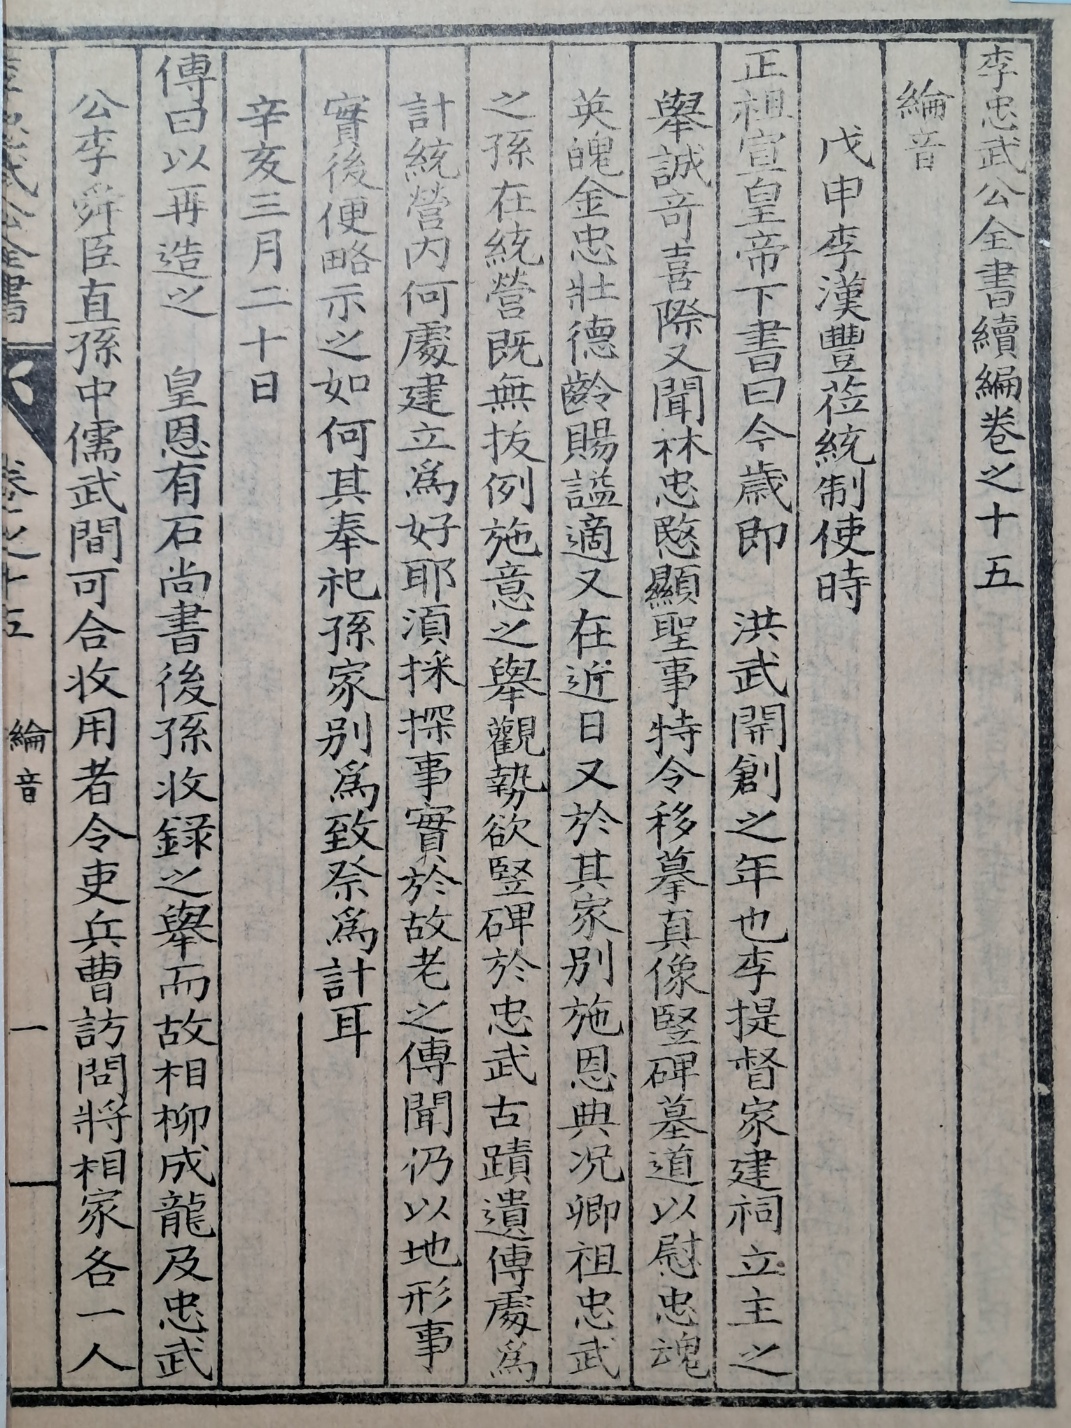 李忠武公全書續編卷之十五
綸音
戊申李漢豐莅統制使時
正祖宣皇帝下書曰今歲即　洪武開創之年也李提督家建祠立主之
舉誠奇喜際又聞林忠愍顯聖事特令移摹真像竪碑墓道以慰忠魂
英魄金忠壯德齡賜諡適又在近日又於其家別施恩典况卿祖忠武
之孫在統營既無拔例施意之舉觀勢欲竪碑於忠武古蹟遺傳處爲
計統營内何處建立爲好耶湏採探事實於故老之傳聞仍以地形事
實後便略示之如何其奉祀孫家别爲致祭爲計耳
辛亥三月二十日
傳曰以再造之　皇恩有石尚書後孫收録之舉而故相柳成龍及忠武
公李舜臣直孫中儒武間可合收用者令吏兵曹訪問將相家各一人
李忠武公全書　卷之十五　綸音　一